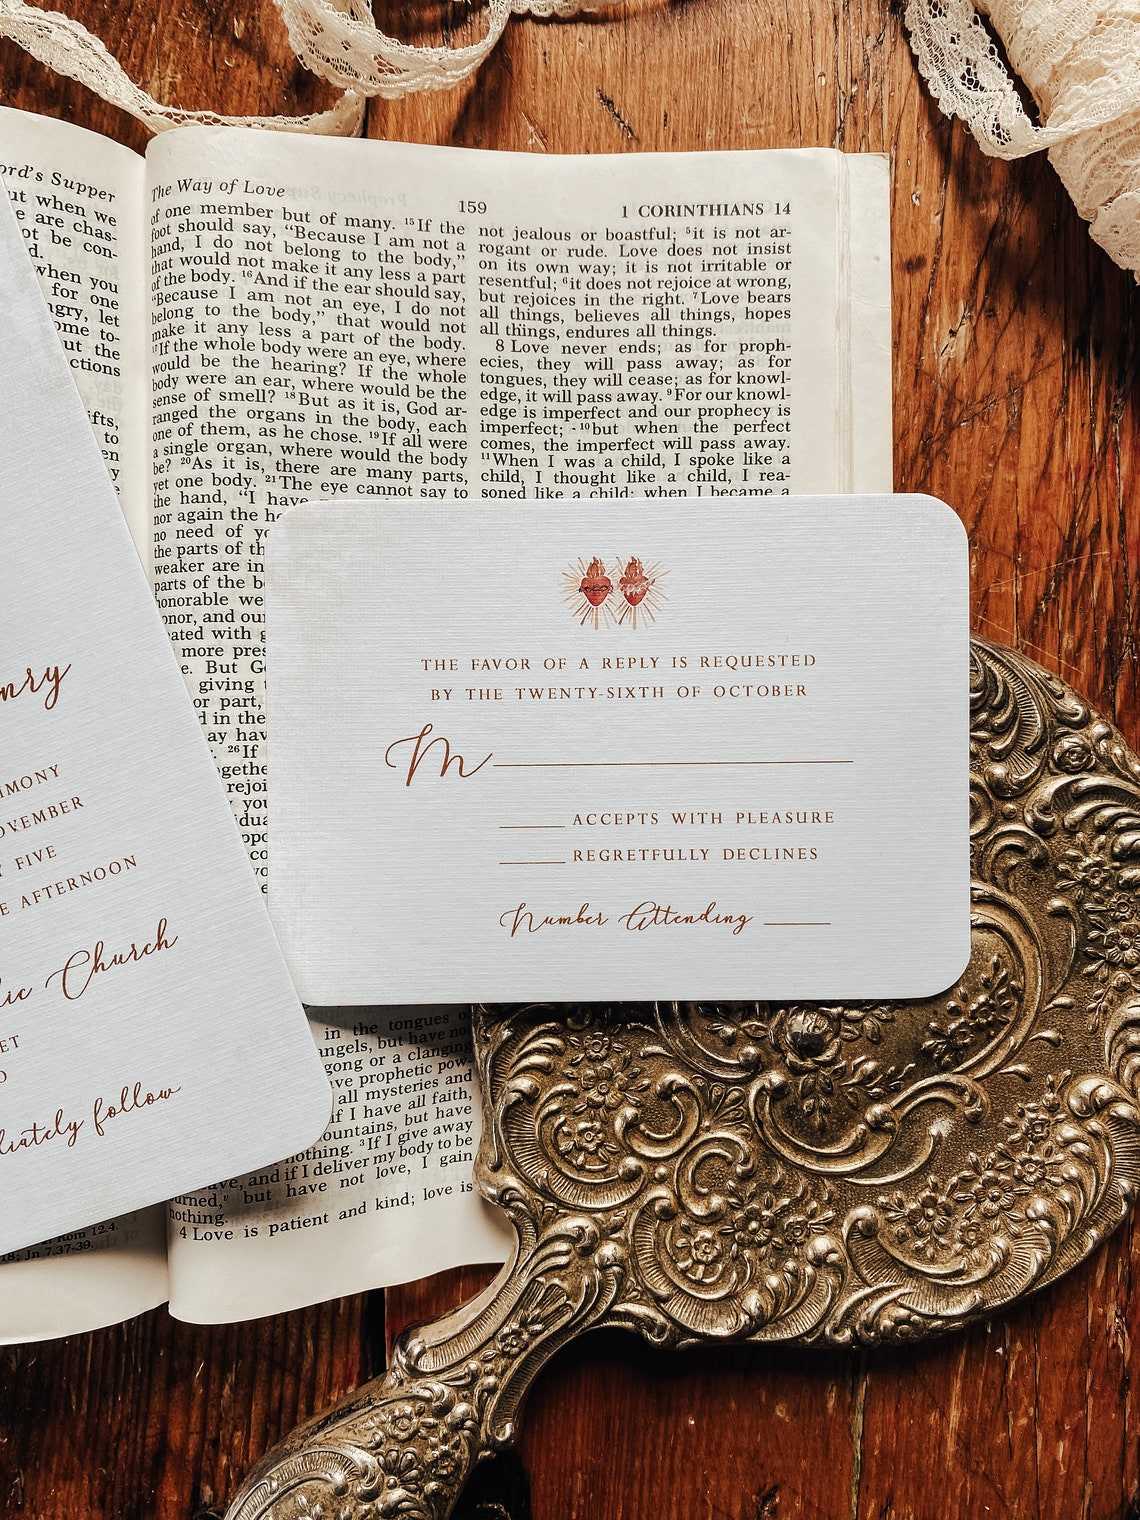 ord's Supper
ut when we
e are chas-
ot be con-
d.
when you
for one
ngry, let
ome to-
ut the
ctions
ifts,
to
en
The Way of Love
159
1 CORINTHIANS 14
of one member but of many. 15 If the
foot should say, “Because I am not a
hand, I do not belong to the body,”
that would not make it any less a part
of the body. 16 And if the ear should say,
“Because I am not an eye, I do not
belong to the body,” that would not
make it any less a part of the body.
17 If the whole body were an eye, where
would be the hearing? If the whole
body were an ear, where would be the
sense of smell? 18 But as it is, God ar-
ranged the organs in the body, each
one of them, as he chose. 19 If all were
a single organ, where would the body
be? 20 As it is, there are many parts,
yet one body. 21 The eye cannot say to
the hand, “I have
nor again the he
no need of yo
the parts of th
weaker are in
parts of the bo
honorable we
onor, and our
ated with g
more pres
e. But Go
giving t
or part,
d in the
ay hav
26 If
ogethe
rejoi
you
idua
oppo
in the tongues of
angels, but have not
gong or a clanging
ave prophetic pow-
all mysteries and
if I have all faith,
ountains, but have
nothing. 3 If I give away
ave, and if I deliver my body to be
burned, but have not love, I gain
nothing.
4 Love is patient and kind; love is
not jealous or boastful; 5 it is not ar-
rogant or rude. Love does not insist
on its own way; it is not irritable or
resentful; 6 it does not rejoice at wrong,
but rejoices in the right. 7 Love bears
all things, believes all things, hopes
all things, endures all things.
8 Love never ends; as for proph-
ecies, they will pass away; as for
tongues, they will cease; as for knowl-
edge, it will pass away. 9 For our knowl-
edge is imperfect and our prophecy is
imperfect; 10 but when the perfect
comes, the imperfect will pass away.
11 When I was a child, I spoke like a
child, I thought like a child, I rea-
soned like a child; when I became a
Rom 12.4.
18; Jn 7.37-39.
nry
IMONY
OVEMBER
Y FIVE
E AFTERNOON
lic Church
ET
O
diately follow
THE FAVOR OF A REPLY IS REQUESTED
BY THE TWENTY-SIXTH OF OCTOBER
M
ACCEPTS WITH PLEASURE
REGRETFULLY DECLINES
Number Attending